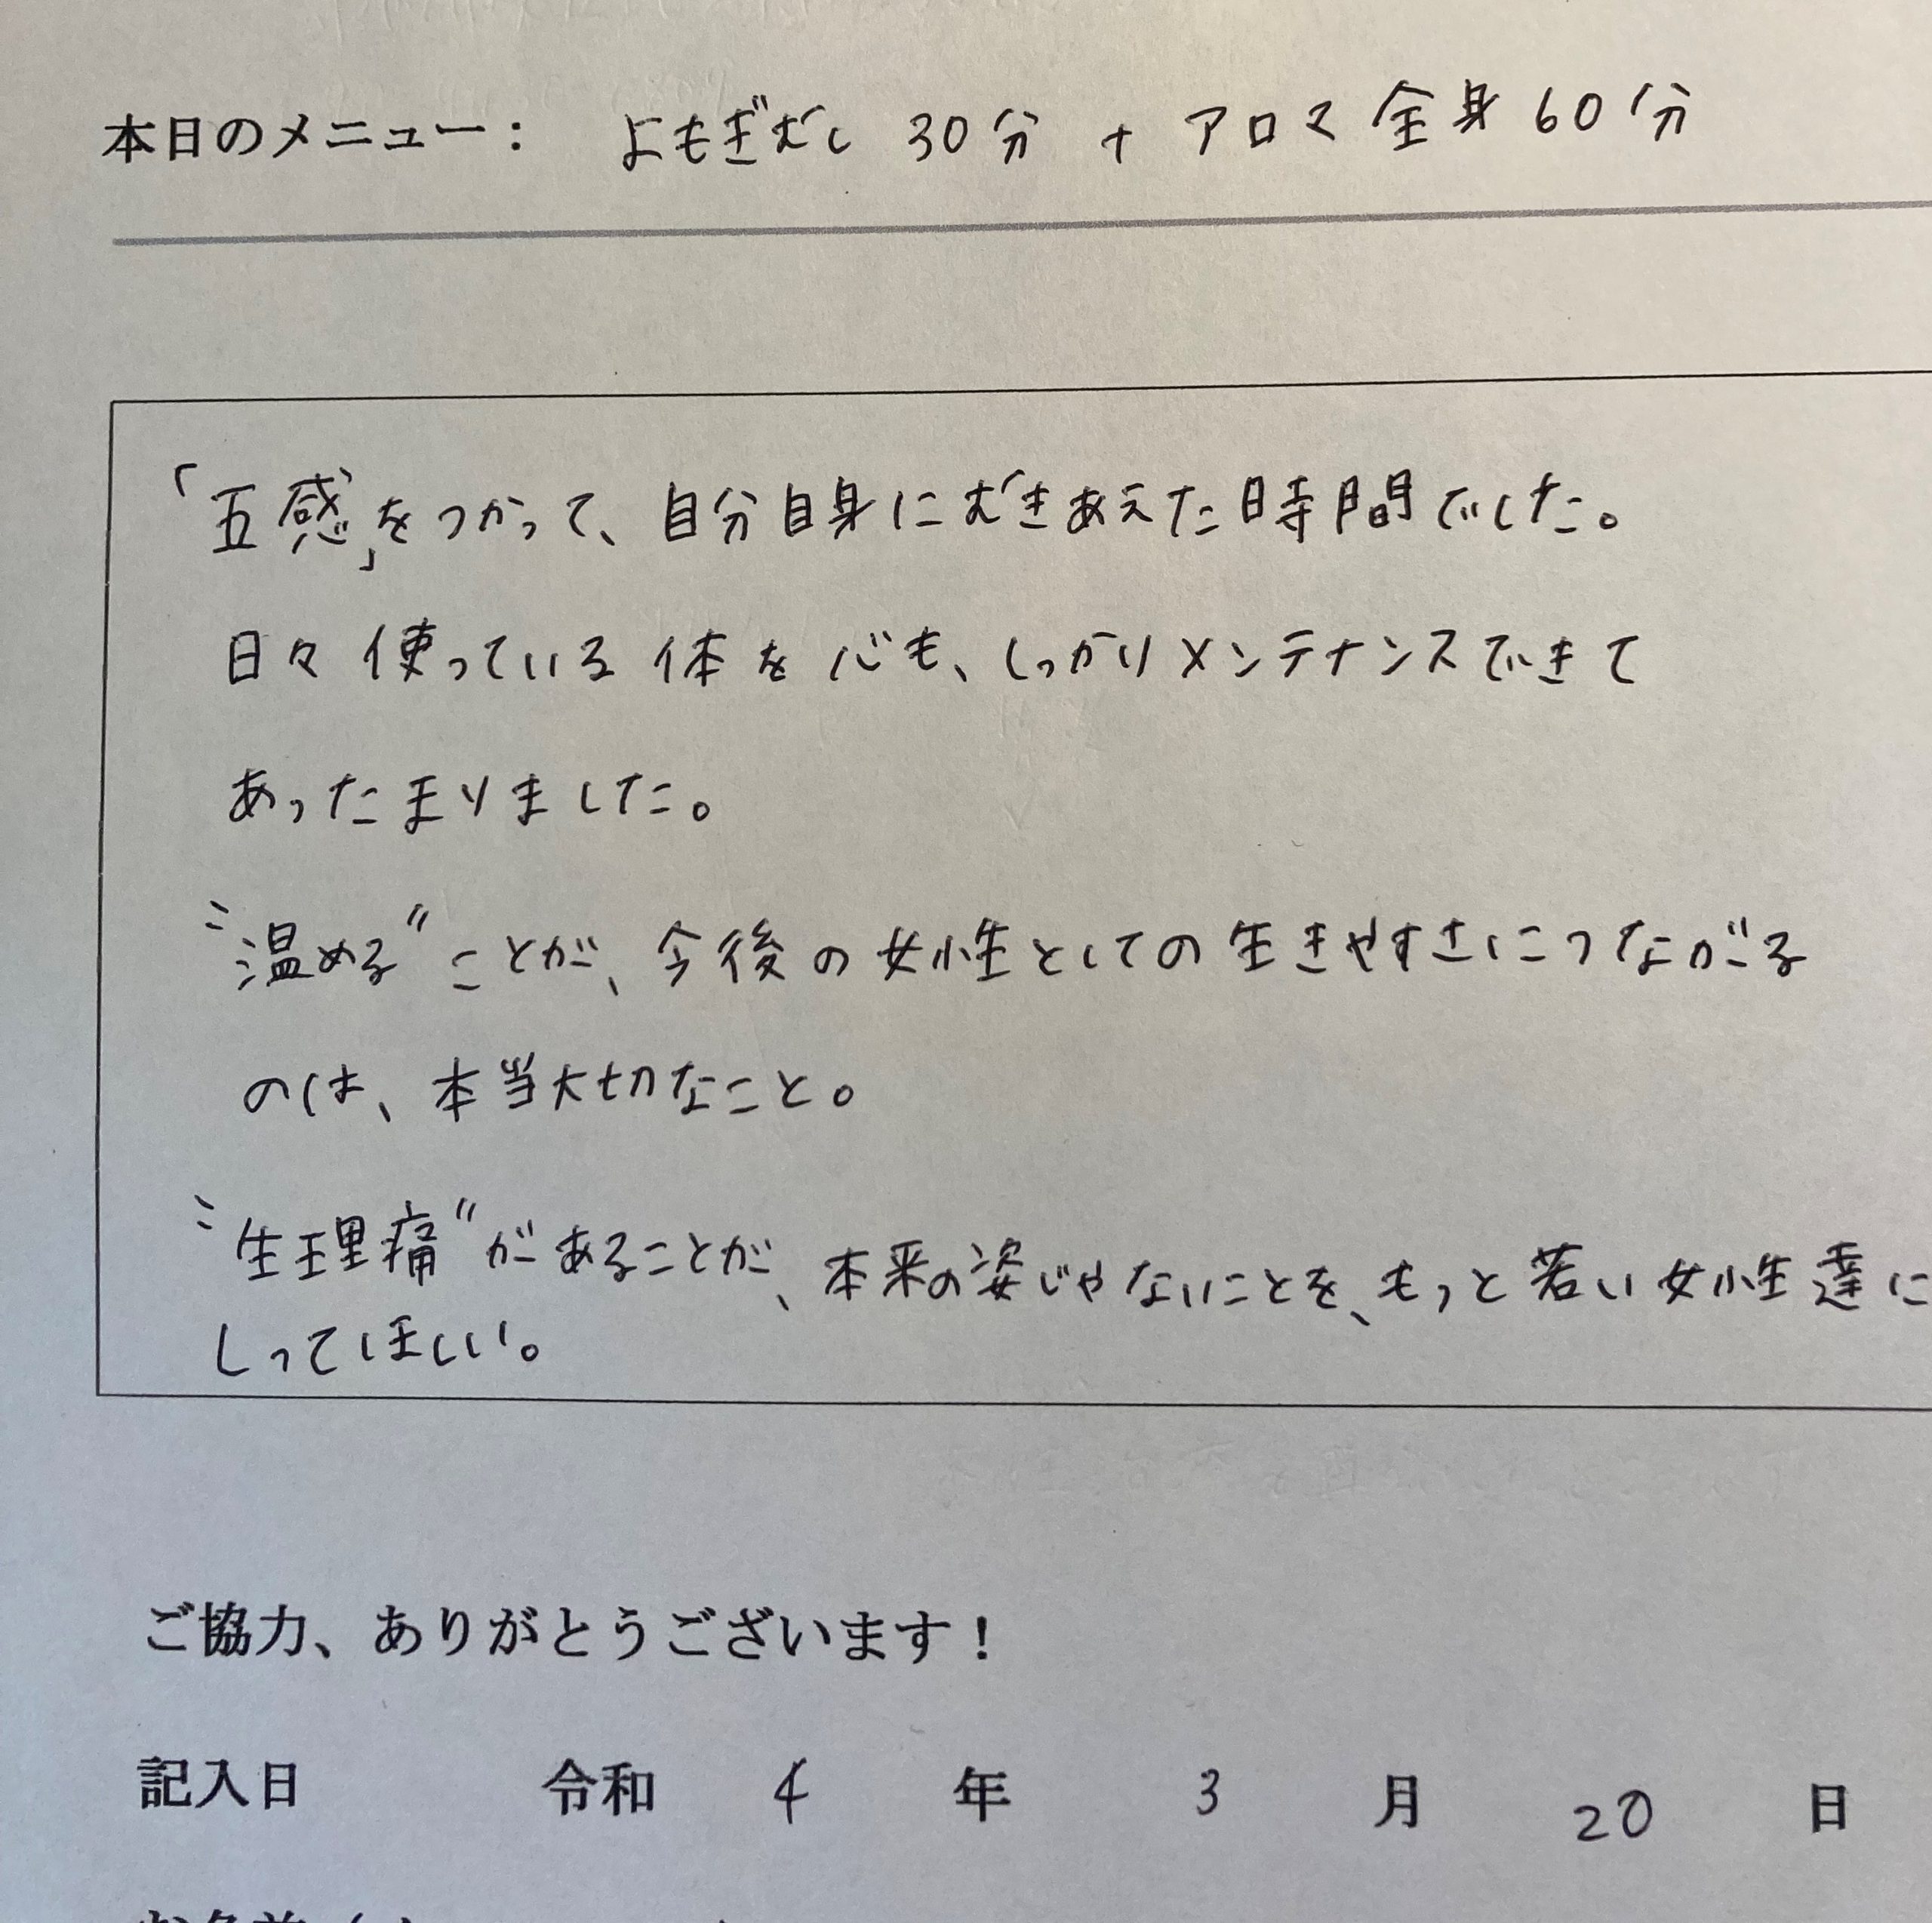 本日のメニュー： よもぎむし 30分 + アロマ 全身 60分
「五感」をつかって、自分自身にむきあえた時間でした。
日々使っている体を心も、しっかりメンテナンスできて
あったまりました。
"温める"ことが、今後の女性としての生きやすさにつながる
のは、本当大切なこと。
"生理痛"があることが、本来の姿じゃないことを、もっと若い女性達に
しってほしい。
ご協力、ありがとうございます！
記入日 令和 4 年 3 月 20 日